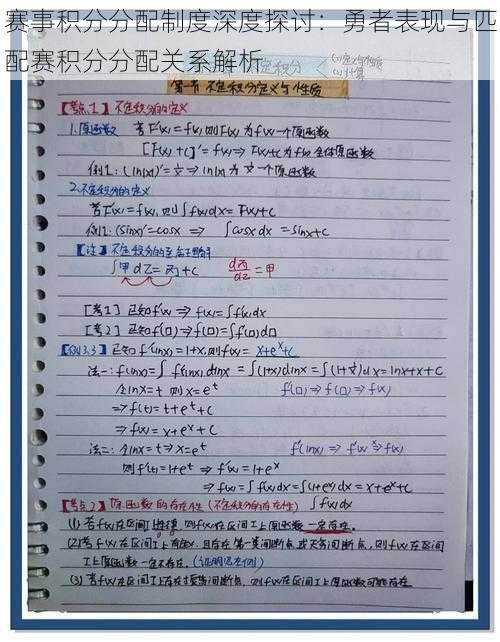 赛事积分分配制度深度探讨：勇者表现与匹
配赛积分分配关系解析
积分
(1)定义与性质
(2)计算
第一节 不定积分定义与性质
【考点1】不定积分的定义
1.原函数 若F'(x)=f(x),则F(x)为f(x)一个原函数
[F(x)+C]'=f(x)⇒F(x)+C为f(x)全体原函数
例1:(ln|x|)'=1/x⇒ln|x|为1/x一个原函数
2.不定积分的定义
若F'(x)=f(x),则∫f(x)dx=F(x)+C
例1:(sinx)'=cosx ⇒ ∫cosx dx=sinx+C
【注】不定积分的至高理解
∫甲dZ=丙+C d丙/dZ=甲
[考1]已知f'(x)⇒f(x)=∫f'(x)dx
[考2]已知f'(□)⇒f(□)=∫f'(□)d□
【例3.3】已知f'(lnx)=1+x,则f(x)= x+eˣ+C
法一:f(lnx)=∫f'(lnx)dlnx=∫(1+x)dlnx=∫(1+1/x)dx=lnx+x+C
令lnx=t 则x=eᵗ f'(□)⇒f(□)⇒f(x)
⇒f(t)=t+eᵗ+C
⇒f(x)=x+eˣ+C
法二:令lnx=t⇒x=eᵗ f'(lnx)⇒f'(x)⇒f(x)
则f'(t)=1+eᵗ⇒f'(x)=1+eˣ
⇒f(x)=∫f'(x)dx=∫(1+eˣ)dx=x+eˣ+C
【考点2】原函数的存在性(不定积分的存在性) ∫f(x)dx
(1)若f(x)在区间I上连续,则f(x)在区间I上原函数一定存在。
(2)若f(x)在区间I上有定义,且存在第一类间断点或无穷间断点,则f(x)在区间
I上原函数一定不存在。(证明记反例)
(3)若f(x)在区间I上存在振荡间断点,则f(x)在区间I上原函数可能存在